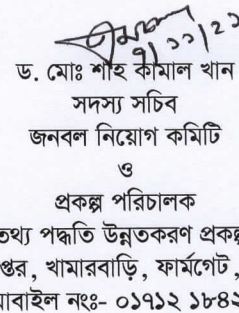 ৭/১১/২১
ড. মোঃ শাহ কামাল খান
সদস্য সচিব
জনবল নিয়োগ কমিটি
ও
প্রকল্প পরিচালক
তথ্য পদ্ধতি উন্নতকরণ প্রকল্প
প্তর, খামারবাড়ি, ফার্মগেট,
মোবাইল নংঃ- ০১৭১২ ১৮৪২